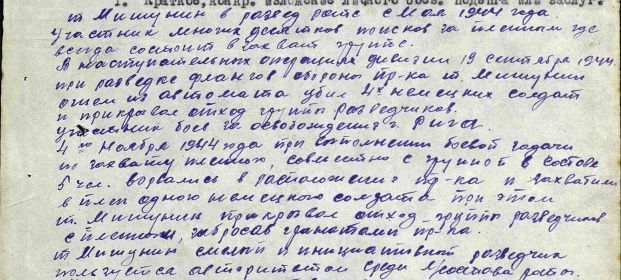 1. Краткое, конкр. изложение личного боев. подвига или заслуг.
т. Мишунин в развед роте с мая 1944 года.
участник многих десятков поисков за пленным где
всегда состоит в захват группе.
В наступательных операциях дивизии 19 сентября 1944.
при разведке флангов обороны пр-ка т. Мишунин
огнем из автомата убил 4х немецких солдат
и прикрывал отход группы разведчиков.
участник боев за освобождения г. Рига.
4го ноября 1944 года при выполнении боевой задачи
по захвату пленного, совместно с группой в составе
5 чел. ворвались в расположение пр-ка и захватили
в плен одного немецкого солдата при этом
т. Мишунин прикрывал отход группы разведчиков
с пленным, забросав гранатами пр-ка.
т Мишунин смелый и инициативной разведчик
пользуется авторитетом среди л/состава роты.